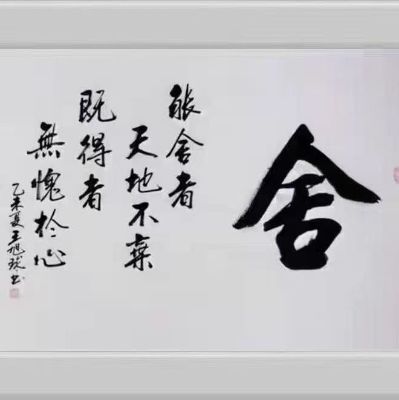 舍
能舍者
天地不棄
既得者
無愧於心
乙未夏王旭球书